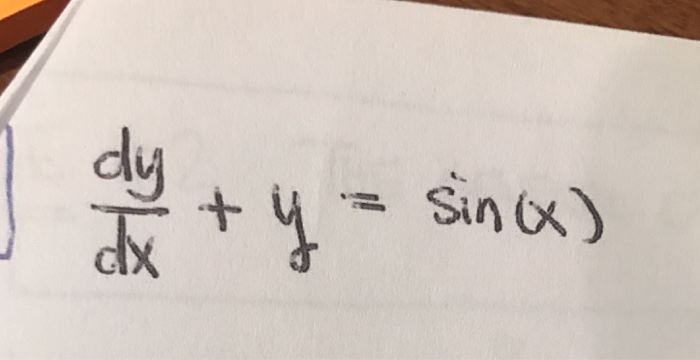 dy/dx + y = sin(x)